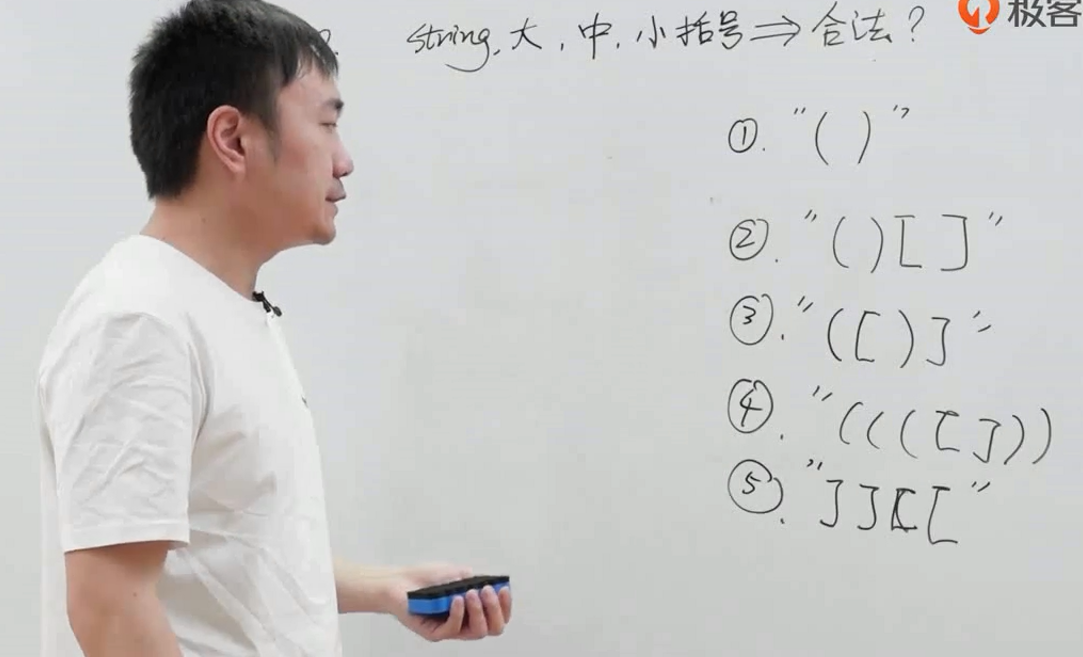 极客
string, 大, 中, 小括号⇒合法?
①. "( )"
②. "( ) [ ]"
③. "( [ ) ]"
④. "( ( ( [ ] ) )
⑤. "] ] [ [ "